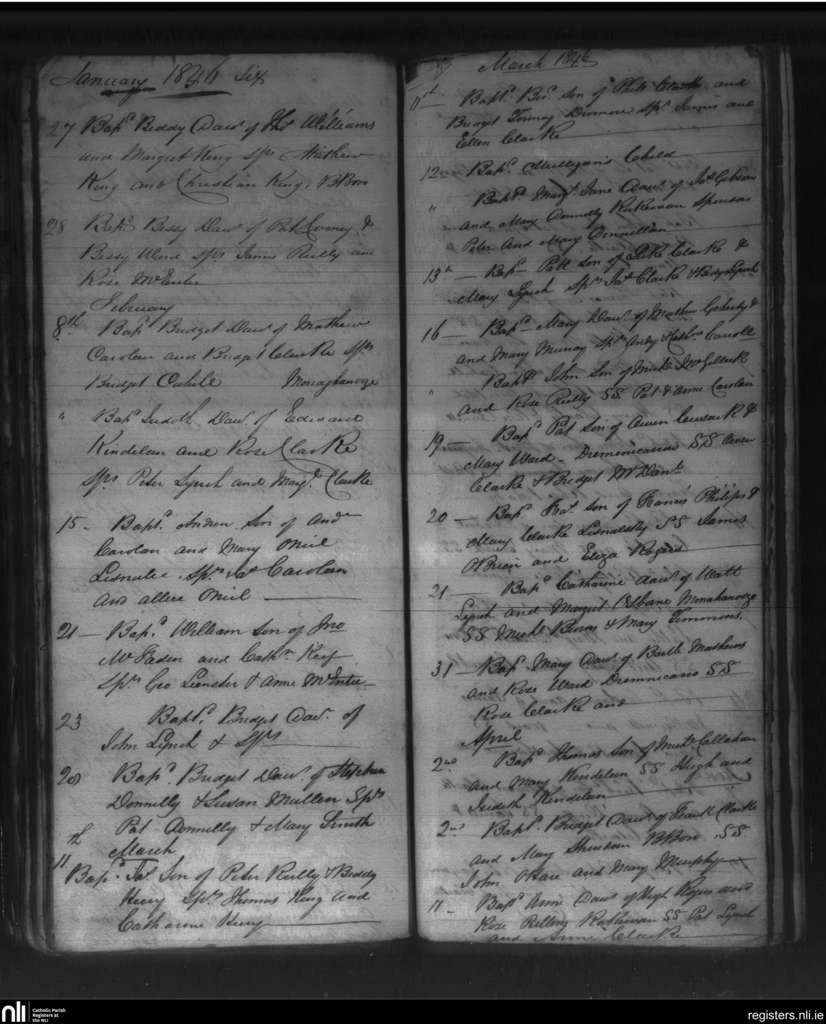 January 1846 Six
27 Bapd Biddy Dawr of Thos Williams
and Margret King Sprs Mathew
King and Christian King, BBon
28 Bapd Bessy Dawr of Pat Corney &
Bessy Ward Sprs James Reilly and
Rose McEntee
February
8th Bapd Bridget Dawr of Mathew
Carolan and Bridget Clarke Sprs
Bridget Monaghanooze
" Bapd Judith Dawr of Edward
Kindelan and Rose Clarke
Sprs Peter Lynch and Margt Clarke
15 - Bapt.d Andrew Son of Andw
Carolan and Mary Oniel
Sprs Jas Carolan
and allice Oniel
21 - Bap.d William Son of Jno
McFaden and Cathn Keef
Sprs Geo & Anne McEntee
23 Bapt.d Bridget Dawr of
John Lynch & Sprs
28 Bapd Bridget Dawr of Stephen
Donnelly & Susan Mullen Sprs
Pat Donnelly & Mary Smith
March
11th Bapd Jas Son of Peter Reilly & Biddy
Henry Sprs Thomas King and
Catharine Henry
March 1846
11th Baptd Son of Clarke and
Bridget Dromore Sprs James and
Ellen Clarke
12 Bapd Mulligan's Child
" Bapd Margt Jane Dawr of Jas Gibson
and Mary Donnelly Sponsors
Peter and Mary Donnellan
13th - Bapd Patt Son of Luke Clarke &
Mary Lynch Sprs Jas Clarke & Biddy Lynch
16 - Bapd Mary Dawr of Mathew &
and Mary Murray Sprs Andy & Cathn Carroll
" Baptd John Son of Michl McGullick
and Rose Reilly SS Pat & Anne Carolan
19 - Bapd Pat Son of Owen Cusack &
Mary Ward - SS Owen
Clarke & Bridget
20 - Bapd Jas Son of Francis Philips &
Mary Clarke SS James
OBrien and Eliza
21 - Bapd Catharine dawr of Watt
Lynch and Margret Monahanooze
SS Michl & Mary Timmons.
31 - Bapd Mary Dawr of Mathews
and Rose Ward SS
Rose Clarke and
April
2nd Bapd Thomas Son of Michl Calladan
and Mary Kindelan SS Hugh and
Judith Kindelan
2nd Bapt.d Bridget Dawr of Clarke
and Mary BBon SS
John OHare and Mary Murphy
11 - Bapd Anne Dawr of Hugh and
Rose SS Pat Lynch
and Anne Clarke
nli
Catholic Parish
Registers at
the NLI
registers.nli.ie